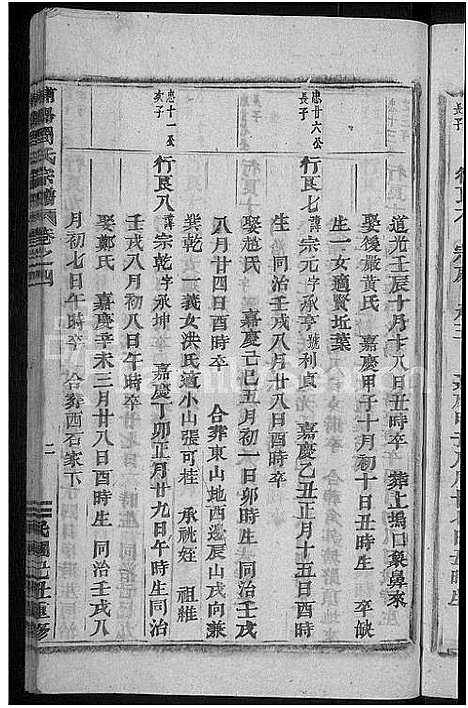 道光壬辰十月十八日丑時卒 葬上塢口象鼻來
娶後嚴黃氏 嘉慶甲子十月初十日丑時生 卒缺
生一女適賢坵葉
忠廿六公
長子
行良七諱宗元字承亨號利貞 嘉慶乙丑正月十五日酉時
生 同治壬戌八月廿八日酉時卒
娶趙氏 嘉慶己巳五月初一日卯時生 同治壬戌
八月廿四日酉時卒 合葬東山地西邊辰山戌向兼
巽乾 一義女洪氏適小山張可桂 承祧姪 祖維
忠十一公
次子
行良八諱宗乾字承坤 嘉慶丁卯正月廿九日午時生 同治
壬戌八月初八日午時卒
娶鄭氏 嘉慶辛未三月廿八日酉時生 同治壬戌八
月初七日午時卒 合葬西石家下
周氏宗譜 卷之四
二
民國己丑重修